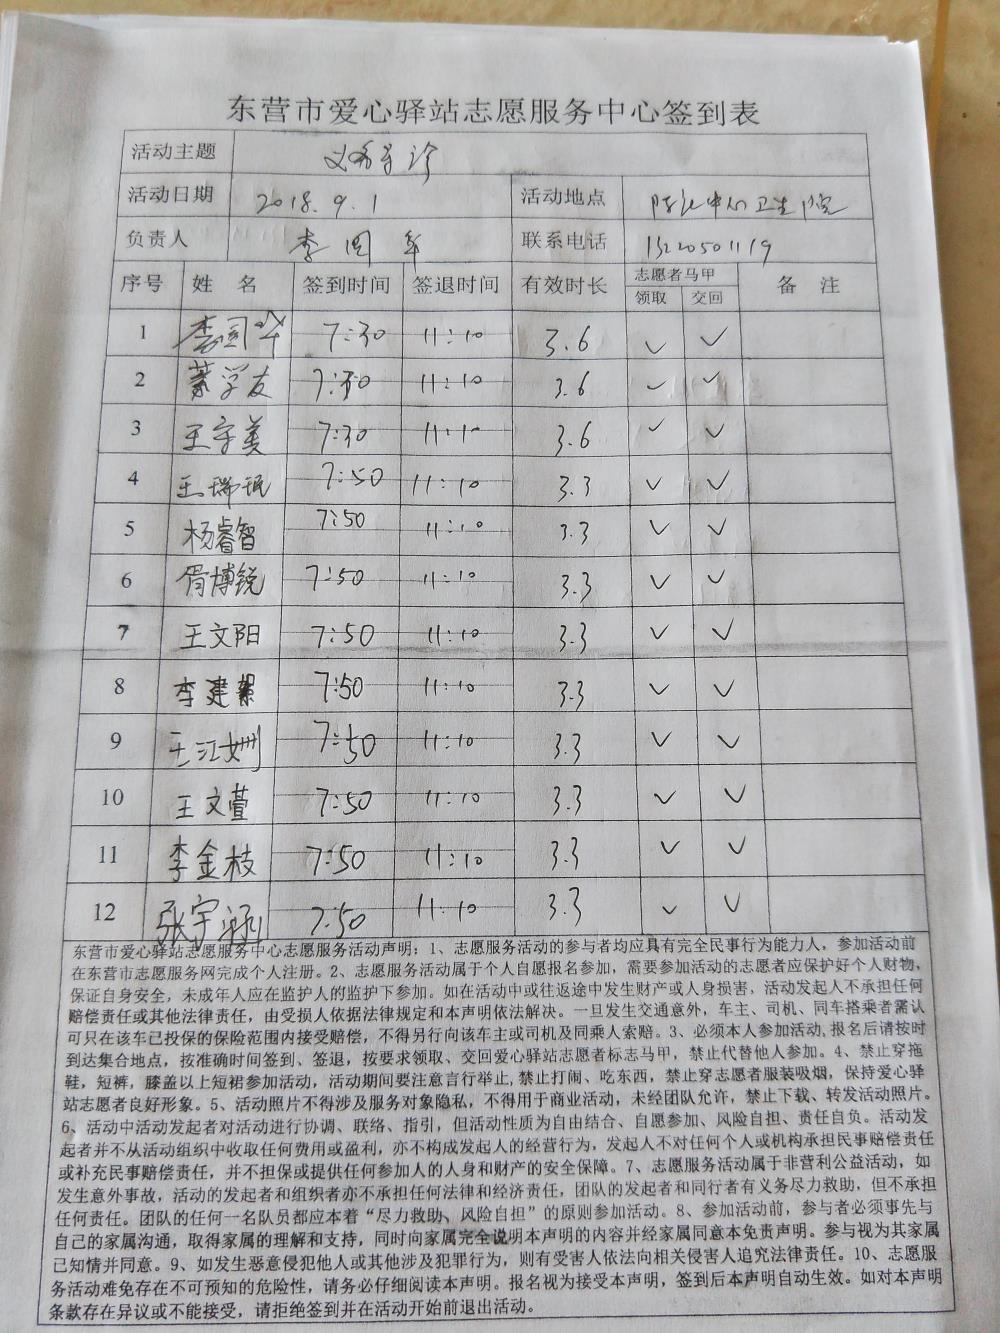 东营市爱心驿站志愿服务中心签到表
活动主题 义务导诊
活动日期 2018.9.1 活动地点 卫生院
负责人 李国华 联系电话 13220501119
序号 姓名 签到时间 签退时间 有效时长 志愿者马甲 备注
领取 交回
1 李国华 7:30 11:10 3.6 ✓ ✓
2 学友 7:30 11:10 3.6 ✓ ✓
3 王守美 7:30 11:10 3.6 ✓ ✓
4 王瑞珉 7:50 11:10 3.3 ✓ ✓
5 杨睿智 7:50 11:10 3.3 ✓ ✓
6 胥博锐 7:50 11:10 3.3 ✓ ✓
7 王文阳 7:50 11:10 3.3 ✓ ✓
8 李建 7:50 11:10 3.3 ✓ ✓
9 王江姗 7:50 11:10 3.3 ✓ ✓
10 王文萱 7:50 11:10 3.3 ✓ ✓
11 李金枝 7:50 11:10 3.3 ✓ ✓
12 张宇涵 7:50 11:10 3.3 ✓ ✓
东营市爱心驿站志愿服务中心志愿服务活动声明：1、志愿服务活动的参与者均应具有完全民事行为能力人，参加活动前
在东营市志愿服务网完成个人注册。2、志愿服务活动属于个人自愿报名参加，需要参加活动的志愿者应保护好个人财物，
保证自身安全，未成年人应在监护人的监护下参加。如在活动中或往返途中发生财产或人身损害，活动发起人不承担任何
赔偿责任或其他法律责任，由受损人依据法律规定和本声明依法解决。一旦发生交通意外，车主、司机、同车搭乘者需认
可只在该车已投保的保险范围内接受赔偿，不得另行向该车主或司机及同乘人索赔。3、必须本人参加活动,报名后请按时
到达集合地点，按准确时间签到、签退，按要求领取、交回爱心驿站志愿者标志马甲，禁止代替他人参加。4、禁止穿拖
鞋，短裤，膝盖以上短裙参加活动，活动期间要注意言行举止,禁止打闹、吃东西，禁止穿志愿者服装吸烟，保持爱心驿
站志愿者良好形象。5、活动照片不得涉及服务对象隐私，不得用于商业活动，未经团队允许，禁止下载、转发活动照片。
6、活动中活动发起者对活动进行协调、联络、指引，但活动性质为自由结合、自愿参加、风险自担、责任自负。活动发
起者并不从活动组织中收取任何费用或盈利，亦不构成发起人的经营行为，发起人不对任何个人或机构承担民事赔偿责任
或补充民事赔偿责任，并不担保或提供任何参加人的人身和财产的安全保障。7、志愿服务活动属于非营利公益活动，如
发生意外事故，活动的发起者和组织者亦不承担任何法律和经济责任，团队的发起者和同行者有义务尽力救助，但不承担
任何责任。团队的任何一名队员都应本着“尽力救助、风险自担”的原则参加活动。8、参加活动前，参与者必须事先与
自己的家属沟通，取得家属的理解和支持，同时向家属完全说明本声明的内容并经家属同意本免责声明。参与视为其家属
已知情并同意。9、如发生恶意侵犯他人或其他涉及犯罪行为，则有受害人依法向相关侵害人追究法律责任。10、志愿服
务活动难免存在不可预知的危险性，请务必仔细阅读本声明。报名视为接受本声明，签到后本声明自动生效。如对本声明
条款存在异议或不能接受，请拒绝签到并在活动开始前退出活动。